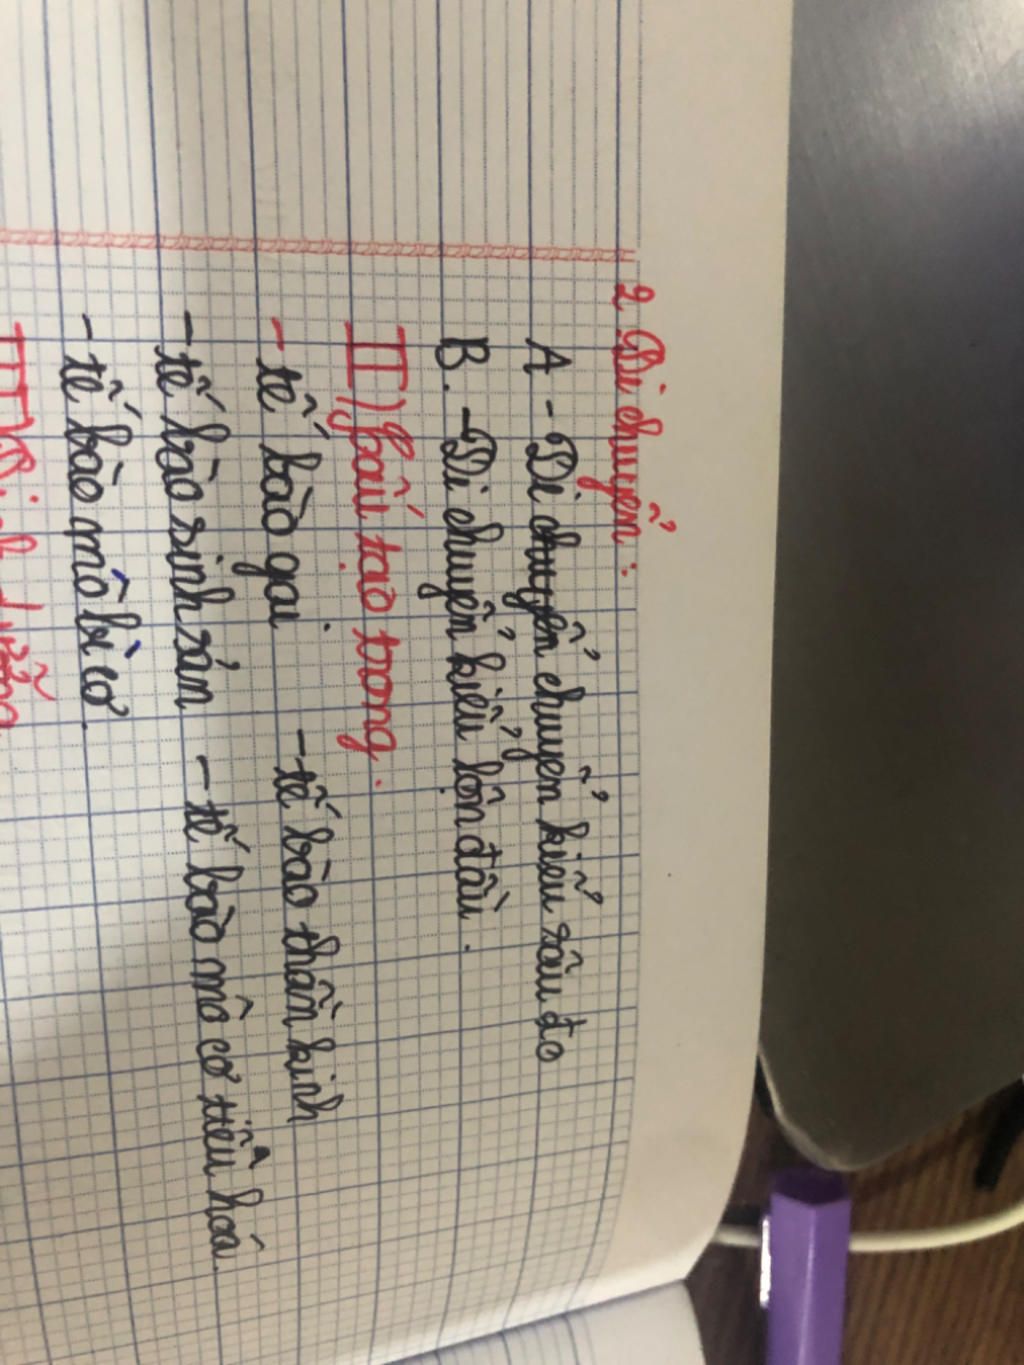 2. Di chuyển:
A - Di chuyển chuyển kiểu sâu đo
B. - Di chuyển kiểu lộn đầu.
II) Cấu tạo trong.
- tế bào gai - tế bào thần kinh
- tế bào sinh sản - tế bào mô cơ tiêu hoá.
- tế bào mô bì cơ.
III) Dinh dưỡng